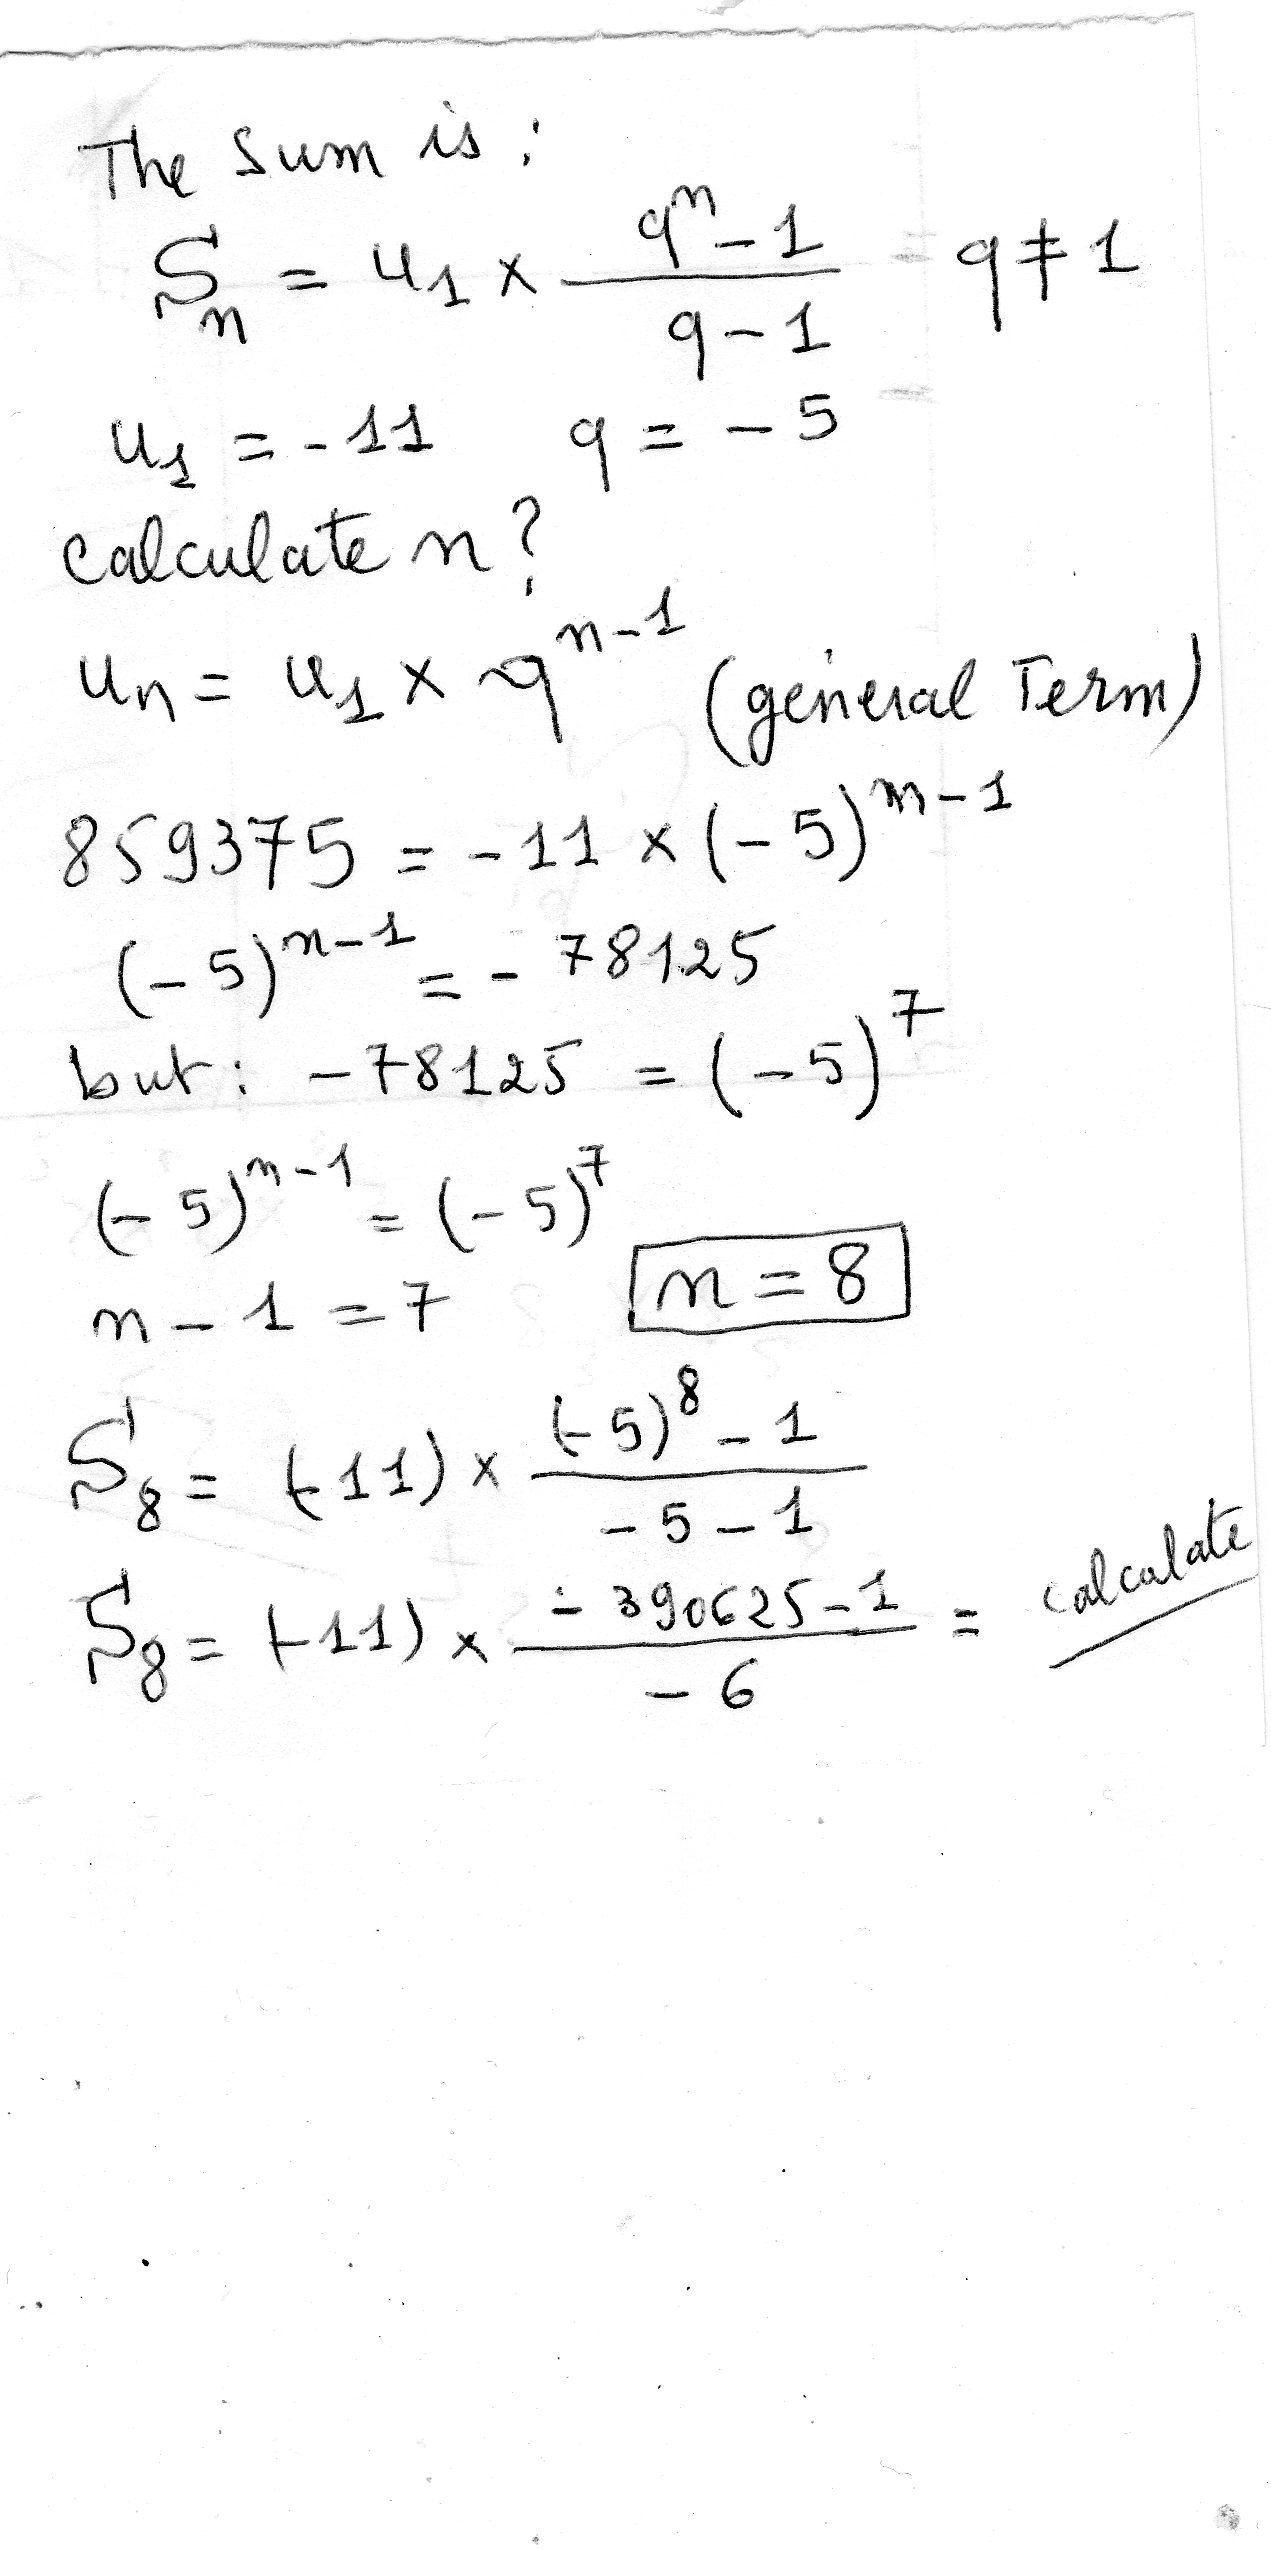 The sum is:
Sn = u1 × (q^n - 1)/(q - 1) q ≠ 1
u1 = -11 q = -5
calculate n?
un = u1 × q^(n-1) (general Term)
859375 = -11 × (-5)^(n-1)
(-5)^(n-1) = - 78125
but: -78125 = (-5)^7
(-5)^(n-1) = (-5)^7
n - 1 = 7 n = 8
S8 = (-11) × ((-5)^8 - 1)/(-5 - 1)
S8 = (-11) × (-390625-1)/(-6) = calculate